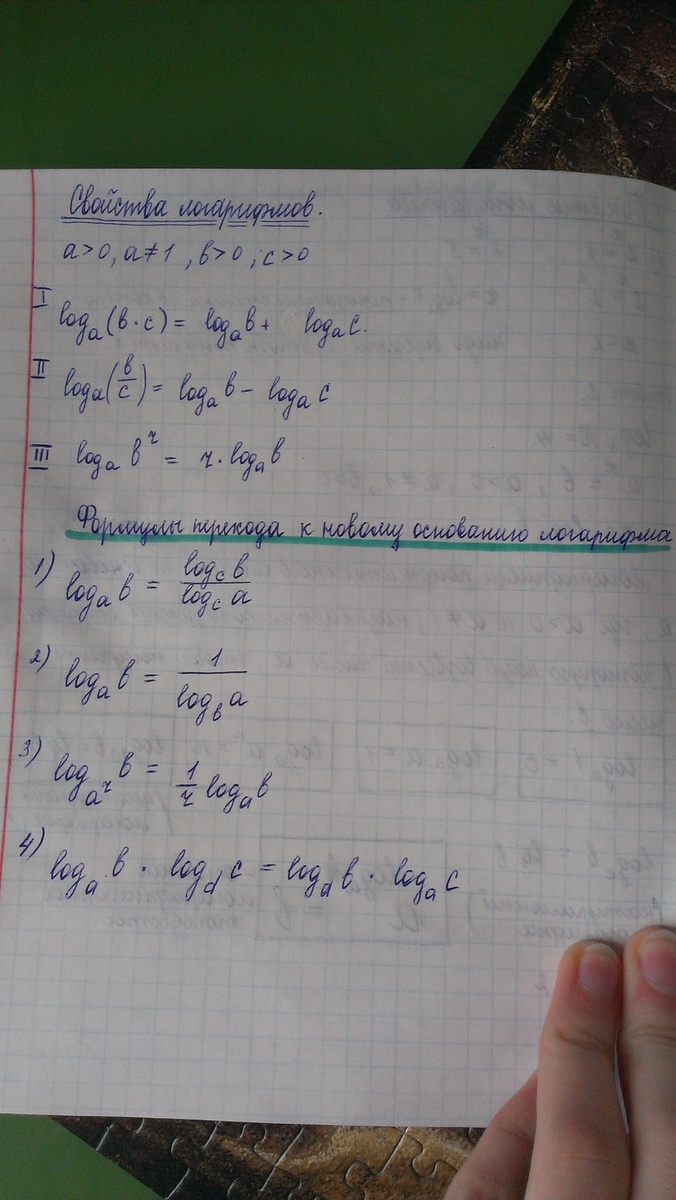 Свойства логарифмов.
a>0, a≠1, в>0, c>0
I log_a(в·c) = log_a в + log_a c.
II log_a(в/c) = log_a в – log_a c
III log_a в^r = r·log_a в
Формулы перехода к новому основанию логарифма
1) log_a в = log_c в / log_c a
2) log_a в = 1 / log_в a
3) log_{a^r} в = 1/r log_a в
4) log_a в · log_d c = log_d в · log_a c